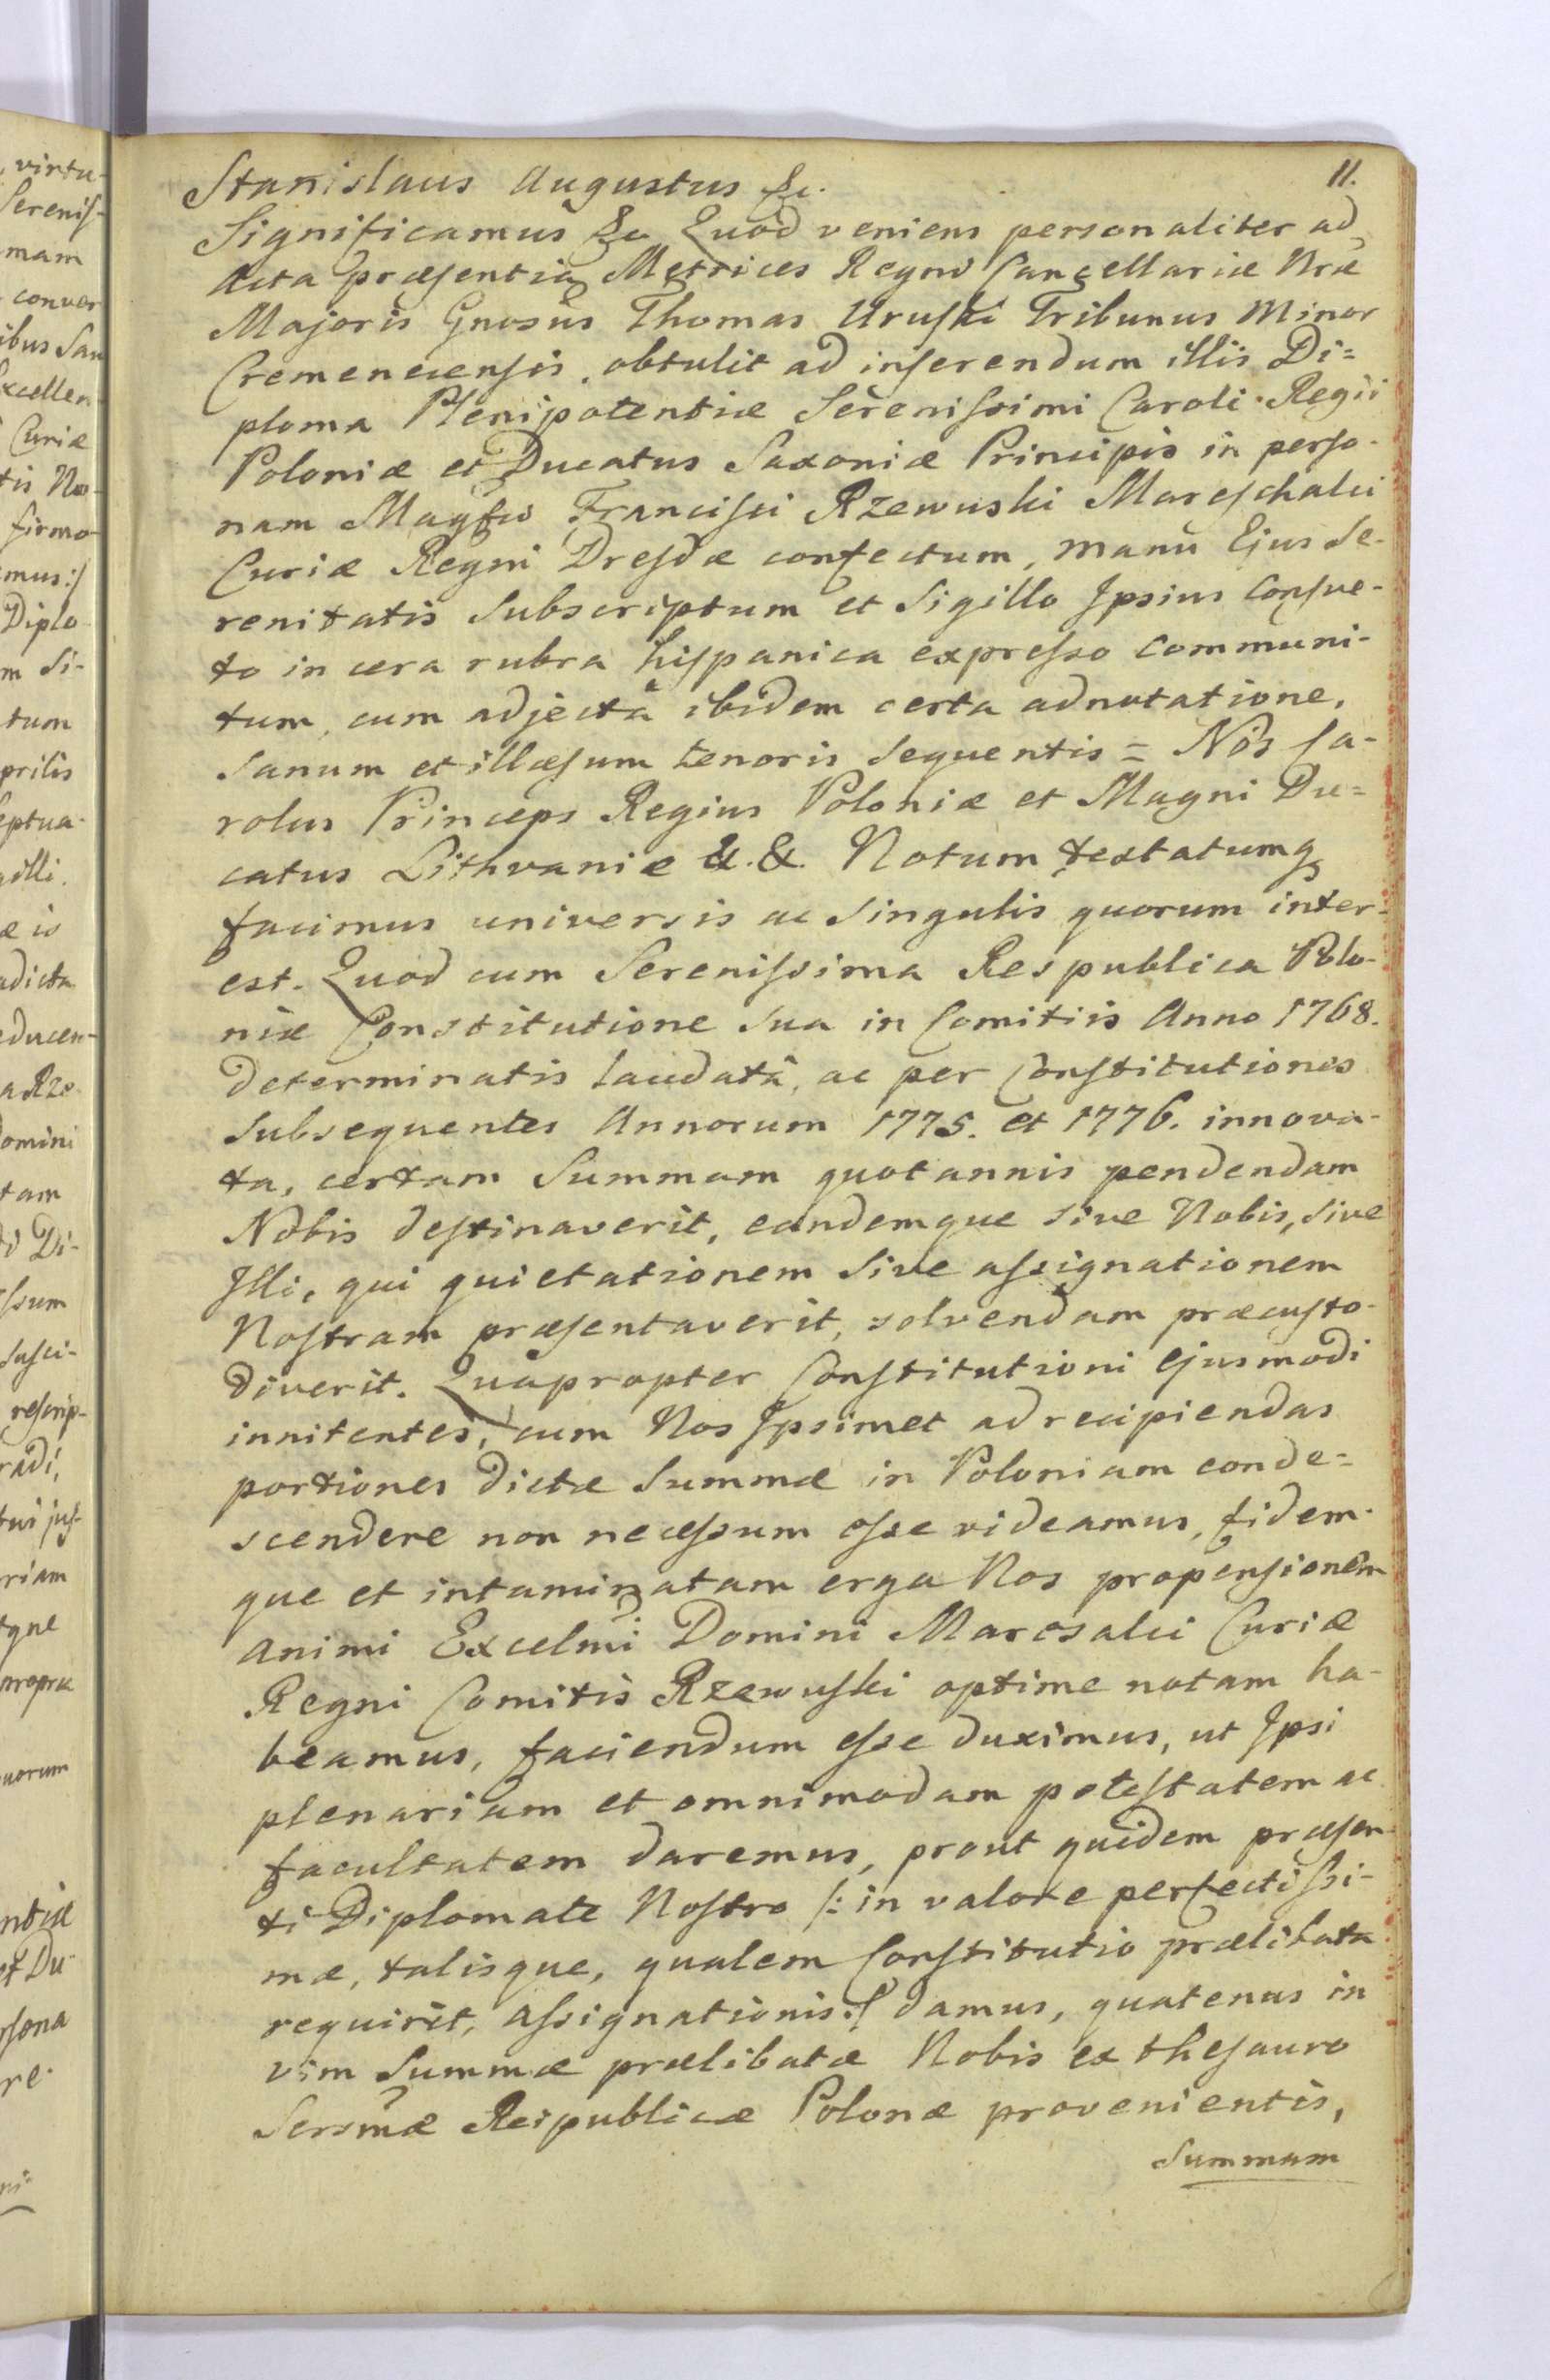 11.
Stanislaus Augustus &c.
Significamus &c Quod veniens personaliter ad
Acta præsentia Metrices Regni Cancellariæ Nræ
Majoris Gnosus Thomas Uruski Tribunus Minor
Cremenecensis, obtulit ad inserendum illis Di=
ploma Plenipotentiæ Serenissimi Caroli Regii
Poloniæ et Ducatus Saxoniæ Principis in perso-
nam Magfci Francisci Rzewuski Mareschalci
Curiæ Regni Dresdæ confectum, manu Ejus Se-
renitatis Subscriptum et Sigillo Ipsius Consve-
to in cera rubra hispanica expresso Communi-
tum, cum adjectâ ibidem certa adnotatione,
Sanum et illæsum tenoris Sequentis = Nos Ca-
rolus Princeps Regius Poloniæ et Magni Du=
catus Lithvaniæ &. &. Notum testatumq
facimus universis ac Singulis quorum inter-
est. Quod cum Serenissima Respublica Polo-
niæ Constitutione Sua in Comitiis Anno 1768.
determinatis laudatâ, ac per Constitutiones
Subsequentes Annorum 1775. et 1776. innova-
ta, certam Summam quotannis pendendam
Nobis destinaverit, eandemque sive Nobis, sive
Illi, qui quietationem Sive assignationem
Nostram præsentaverit, solvendam præcusto-
diverit. Quapropter Constitutioni Ejusmodi
innitentes, cum Nos Ipsimet ad recipiendas
portiones dictæ Summæ in Poloniam conde=
scendere non necessum esse videamus, fidem-
que et intaminatam erga Nos propensionem
animi Excelmi Domini Maresalci Curiæ
Regni Comitis Rzewuski optime notam ha-
beamus, faciendum esse duximus, ut Ipsi
plenariam et omnimodam potestatem ac
facultatem daremus, prout quidem præsen-
ti Diplomate Nostro /: in valore perfectissi-
mæ, talisque, qualem Constitutio prælibata
requirit, assignationis :/ damus, quatenus in
vim Summæ prælibatæ Nobis ex thesauro
Sersmæ Reipublicæ Polonæ provenientis,
Summam